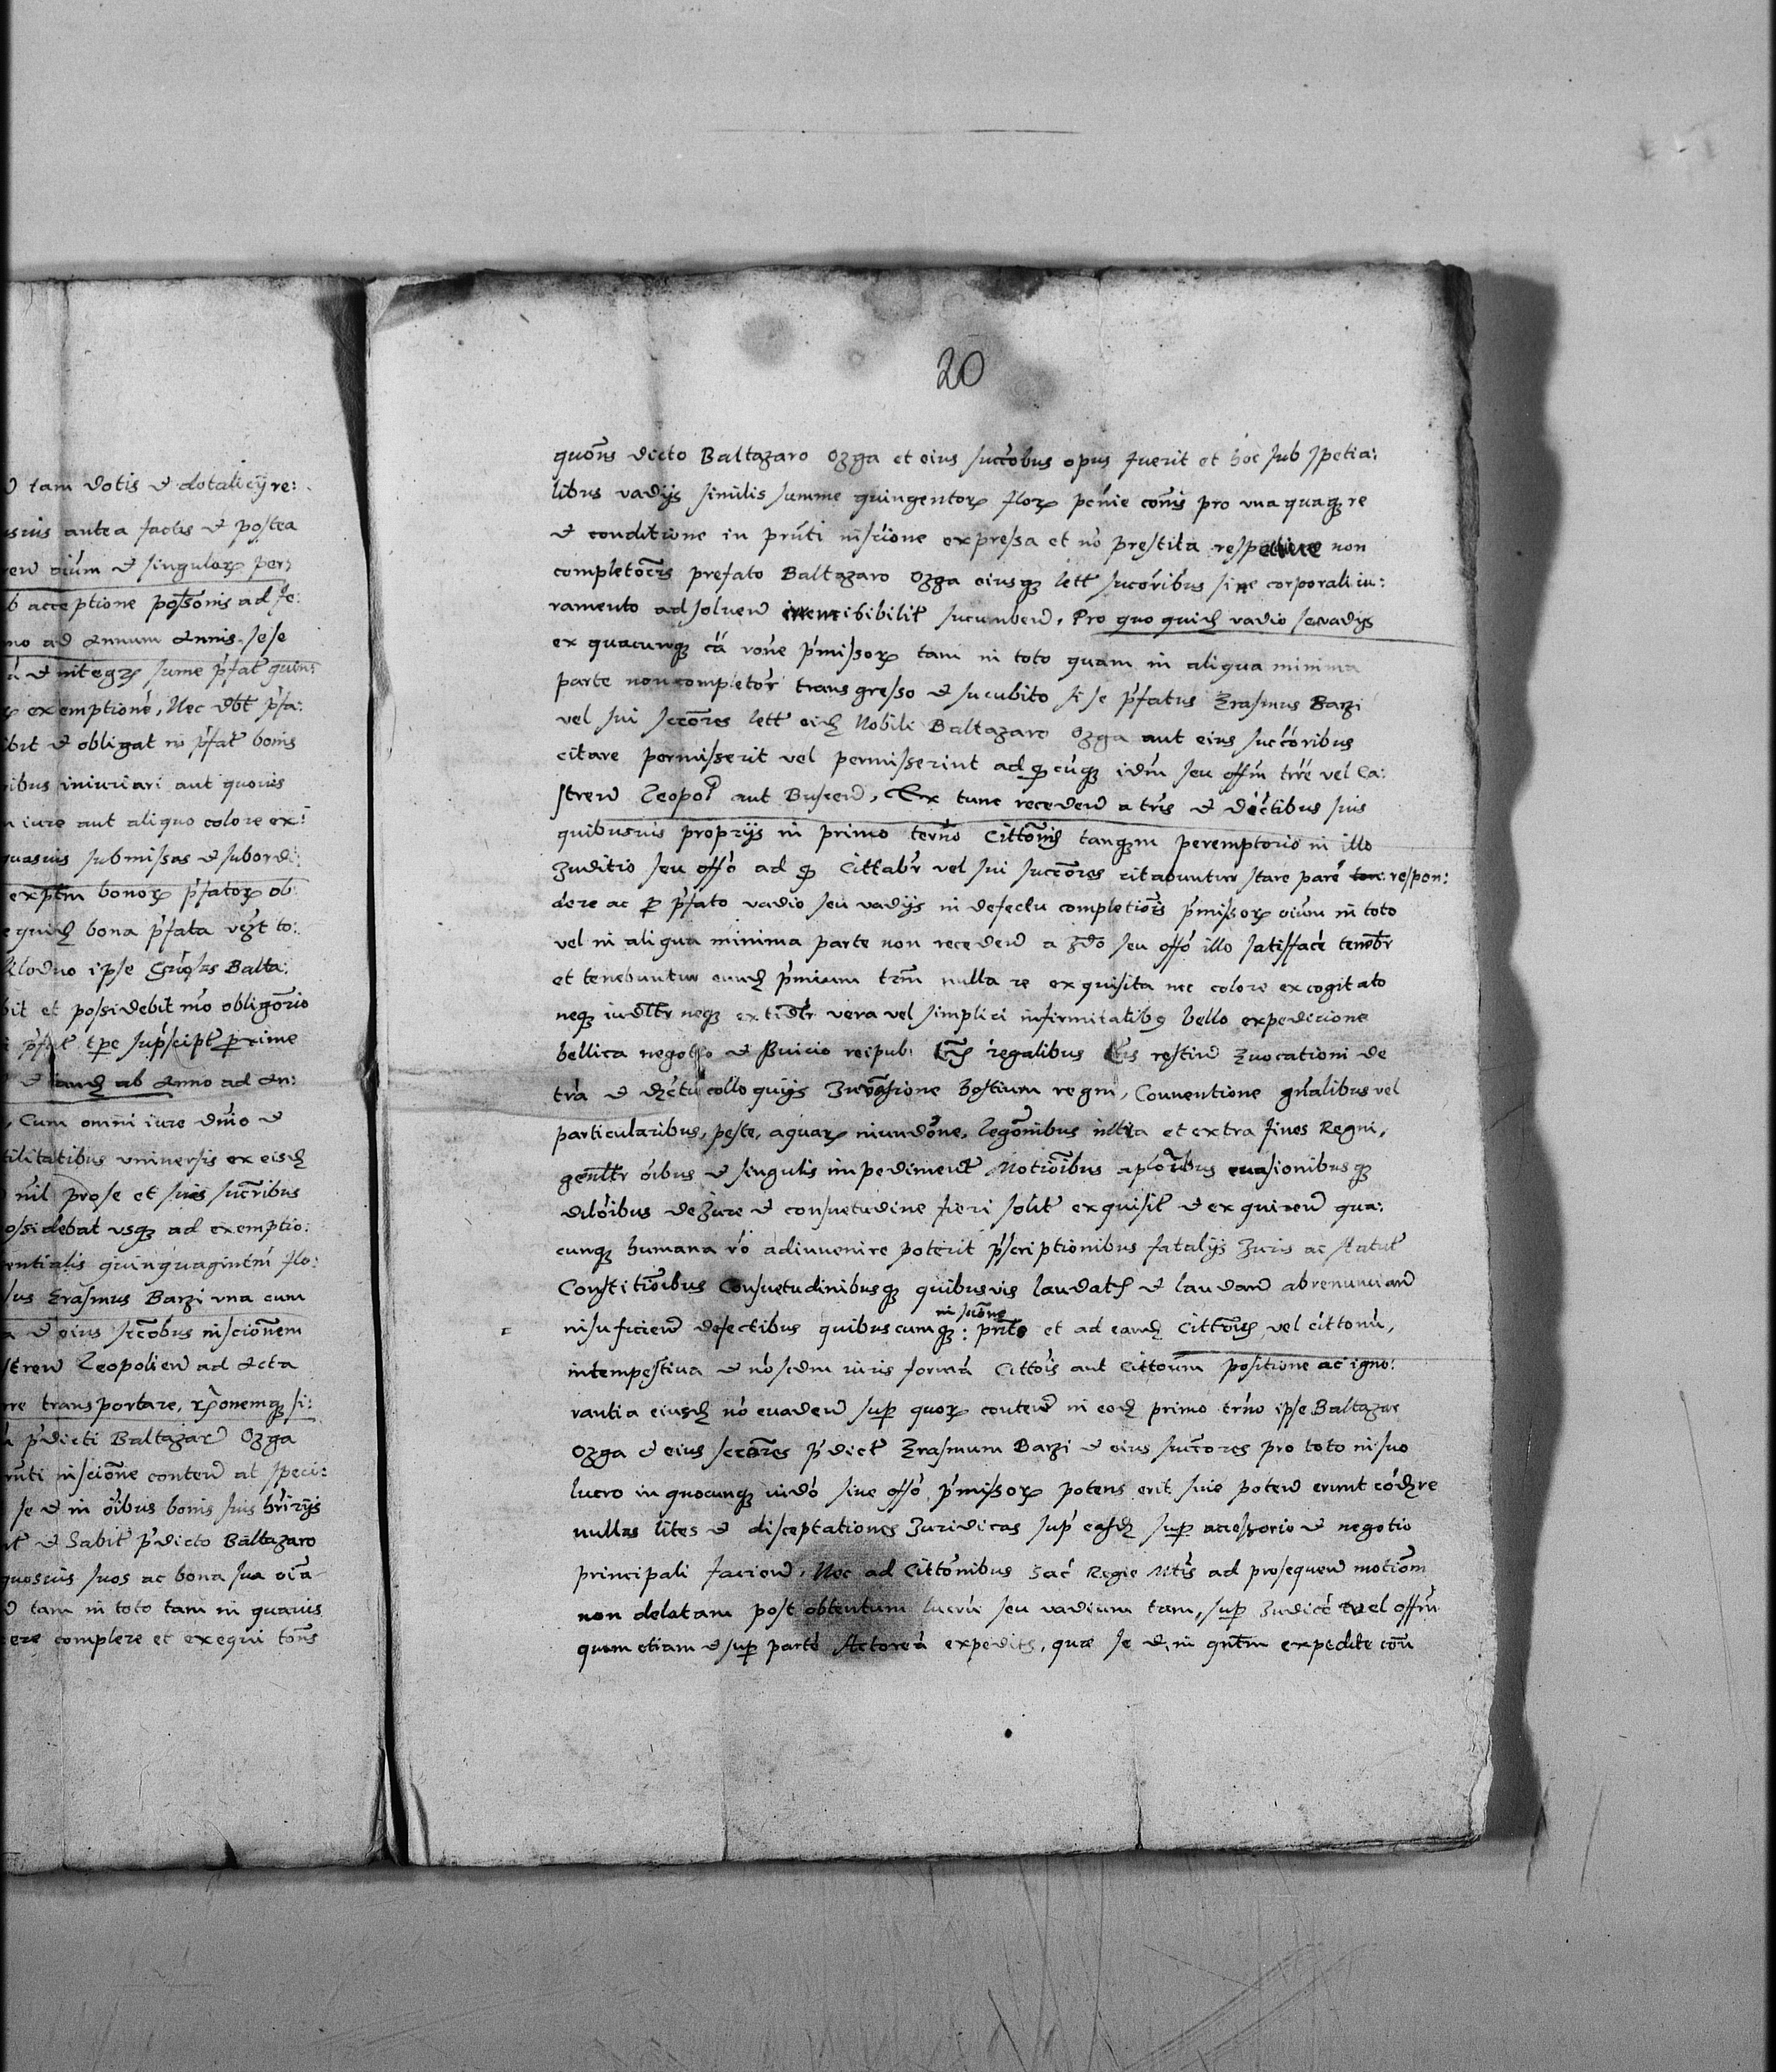 d tam dotis et dotalicÿ re:
usuis antea factis et postea
rend oium et singulorꝝ per
b acceptione possonis ad se:
mo ad Annum Annis sese
et integrꝝ sume pfat quin:
exemptione, Nec dbt pfa:
ibit et obligat in pfat bonis
ibus iniuriari aut quouis
iure aut aliquo colore ex:
quasuis submissas et subordi:
exptm bonorꝝ pfatorꝝ ob
quidꝫ bona pfata vezt to:
ipse Balta:
bit et possidebit mo obligorio
pfat tpe supscipt pxime
et eandꝫ ab Anno ad An:
, Cum omni iure dnio et
tilitatibus vniuersis ex eisdꝫ
nil pro se et suis sucribus
ossidebat vsqꝫ ad exemptio:
entialis quinquagintm flo:
sus Erasmus Barzi vna cum
a et eius sccobus inscionem
strend Leopoliend ad Acta
re transportare, rponemqꝫ si:
pdicti Baltazard Ozga
rnti inscione contend at speci:
se et in oibus bonis suis hrirÿs
it et habit pdicto Baltazaro
quosuis suos ac bona sua oia
d tam in toto tam in quauis
cere complere et exequi tons
20
quons dicto Baltazaro Ozga et eius succobus opus fuerit et hoc sub spetia:
libus vadÿs similis summe quingentorꝝ florꝝ penie cois pro vna quaqꝫ re
et conditione in prnti inscione expressa et no prestita respectiue non
completocis prefato Baltazaro Ozga eiusqꝫ lett sucoribus sine corporali iu:
ramento ad soluend irremisibilit sucumbend, Pro quo quidꝫ vadio seu vadÿs
ex quacunqꝫ ca rone pmissorꝝ tam in toto quam in aliqua minima
parte non completor transgresso et sucubito si se pfatus Erasmus Barzi
vel sui sccores lett eidꝫ Nobili Baltazaro Ozga aut eius succoribus
citare permisserit vel permisserint ad qd cuqꝫ idm seu offm trre vel Ca:
strend Leopol aut Buscend, Ex tunc recedend a tris et dictibus suis
quibusuis proprÿs in primo terno Cittonis tanqꝫm peremptorio in illo
Juditio seu offo ad qd Cittabr vel sui succores citabuntur stare pare respon:
dere ac p pfato vadio seu vadÿs in defectu completiois pmissorꝝ oium in toto
vel in aliqua minima parte non recedend a Jdo seu offo illo satisface tenebr
et tenebuntur eundꝫ pmium trm nulla re exquisita nec colore excogitato
neqꝫ iudltr neqꝫ extidltr vera vel simplici infirmitatibꝰ bello expedicione
bellica negotio et seruicio reipub: regalibus restind Euocationi de
tra et dꝫctu colloquÿs Inuasione hostium regni, Conuentione gnalibus vel
particularibus, peste, aquarꝝ inundone, legonibus intra et extra fines Regni,
genltr oibus et singulis impediment Motioibus aploribus euasionibusqꝫ
diloibus de Jure et consuetudine fieri solit exquisit et exquirend qua:
cunqꝫ humana ro adinuenire poterit pscriptionibus fatalÿs Juris ac statut
Constitioibus Consuetudinibusqꝫ quibusuis laudat et laudand abrenunciand
inscione
insuficiend defectibus quibuscumqꝫ: prnte et ad eandꝫ Cittois vel cittonu,
intempestiua et no scdm iuris forma Cittois aut Cittoum positione ac igno:
rantia eiusdꝫ no euadend sup quorꝝ contend in eodꝫ primo trno ipse Baltazar
Ozga et eius sccores pdict Erasmum Barzi et eius succores pro toto in suo
lucro in quocunqꝫ iudo siue offo pmissorꝝ potens erit siue potend erunt codꝫre
nullas lites et disceptationes Juridicas sup easdꝫ sup accessorio et negotio
principali faciend, Nec ad Cittonibus Sac Regie Mtis ad prosequend motiom
non delatam post obtentum lucru seu vadium tam, sup Judice vel offm
quam etiam et sup parte Actorea expedits, que se et in qntm expedite